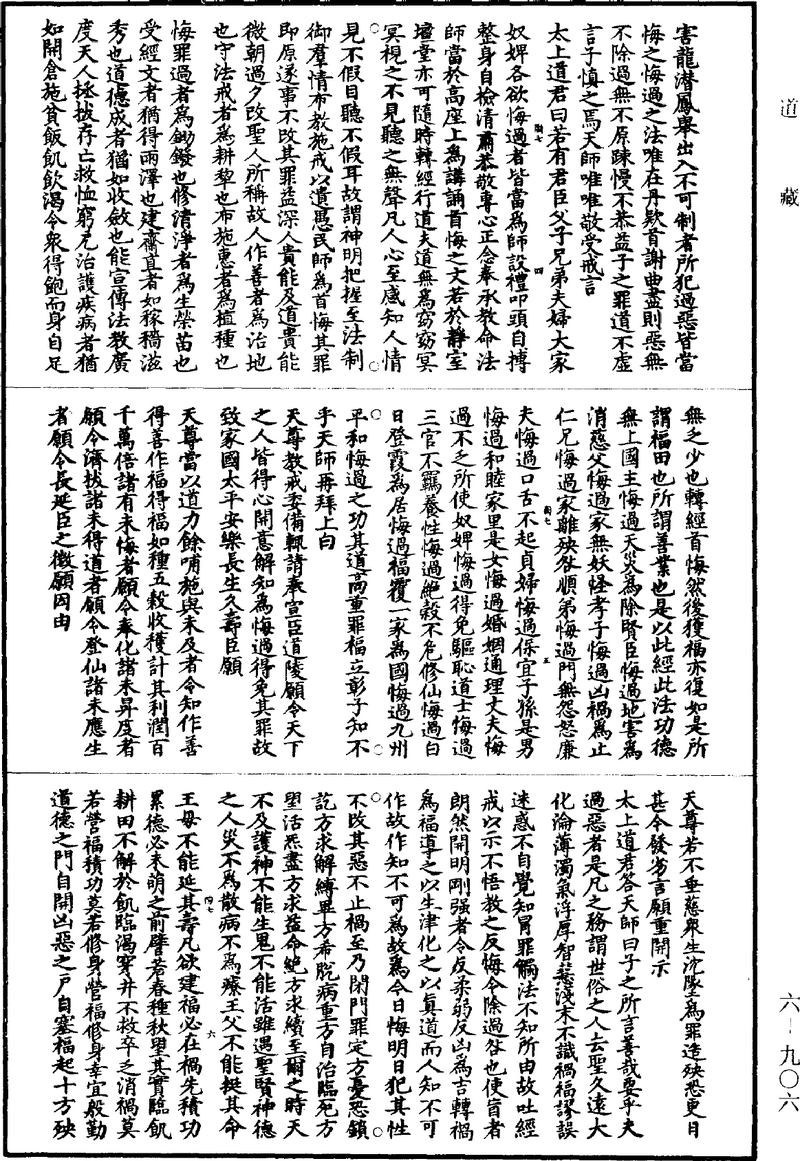 道藏
害龍潛鳳舉出入不可制者所犯過惡皆當
悔之悔過之法唯在丹欵首謝曲盡則惡無
不除過無不原踈慢不恭益子之罪道不虛
言子慎之焉天師唯唯敬受戒言
太上道君曰若有君臣父子兄弟夫婦大家
奴婢各欲悔過者皆當爲師設禮叩頭自搏
整身自檢清肅恭敬專心正念奉承教命法
師當於高座上爲講誦首悔之文若於靜室
壇堂亦可隨時轉經行道夫道無爲窈窈冥
冥視之不見聽之無聲凡人心至感知人情
見不假目聽不假耳故謂神明把握至法制
御羣情布教施戒以遺愚民師爲首悔其罪
即原遂事不改其罪益深人貴能及道貴能
微朝過夕改聖人所稱故人作善者爲治地
也守法戒者爲耕犂也布施惠者爲植種也
悔罪過者爲鋤鏺也修清淨者爲生榮苗也
受經文者猶得雨澤也建齋直者如稼穡滋
秀也道德成者猶如收斂也能宣傳法教廣
度天人拯拔存亡救恤窮厄治護疾病者猶
如開倉施貧飯飢飲渴令衆得飽而身自足
無乏少也轉經首悔然後獲福亦復如是所
謂福田也所謂善業也是以此經此法功德
無上國主悔過天災爲除賢臣悔過地害爲
消慈父悔過家無妖怪孝子悔過凶禍爲止
仁兄悔過家離殃咎順弟悔過門無怨怒廉
夫悔過口舌不起貞婦悔過保宜子孫是男
悔過和睦家里是女悔過婚姻通理丈夫悔
過不乏所使奴婢悔過得免驅恥道士悔過
三官不羈養性悔過絶穀不危修仙悔過白
日登霞爲居悔過福覆一家爲國悔過九州
平和悔過之功其道高重罪福立彰子知不
乎天師再拜上白
天尊教戒委備輒請奉宣臣道陵願令天下
之人皆得心開意解知爲悔過得免其罪故
致家國太平安樂長生久壽臣願
天尊當以道力餘哺施與未及者令知作善
得善作福得福如種五穀收穫計其利潤百
千萬倍諸有未悔者願令奉化諸未昇度者
願令濟拔諸未得道者願令登仙諸未應生
者願令長延臣之微願因由
天尊若不垂慈衆生沈墜爲罪造殃恐更日
甚今發劣言願重開示
太上道君答天師曰子之所言善哉要乎夫
過惡者是凡之務謂世俗之人去聖久遠大
化淪薄濁氣浮厚智慧淺末不識禍福謬誤
迷惑不自覺知冐罪觸法不知所由故吐經
戒以示不悟教之反悔令除過咎也使盲者
朗然開明剛强者令反柔弱反凶爲吉轉禍
爲福導之以生津化之以眞道而人知不可
作故作知不可爲故爲今日悔明日犯其性
不改其惡不止禍至乃閉門罪定方憂惡鎖
訖方求解縛畢方希脱病重方自治臨死方
望活炁盡方求益命絶方求續至爾之時天
不及護神不能生鬼不能活雖遇聖賢神德
之人災不爲散病不爲瘳王父不能挺其命
王母不能延其壽凡欲建福必在禍先積功
累德必未萌之前譬若春種秋望其實臨飢
耕田不解於飢臨渴穿井不救卒乏消禍莫
若營福積功莫若修身營福修身幸宜殷勤
道德之門自開凶惡之戶自塞福起十方殃
六-九〇六